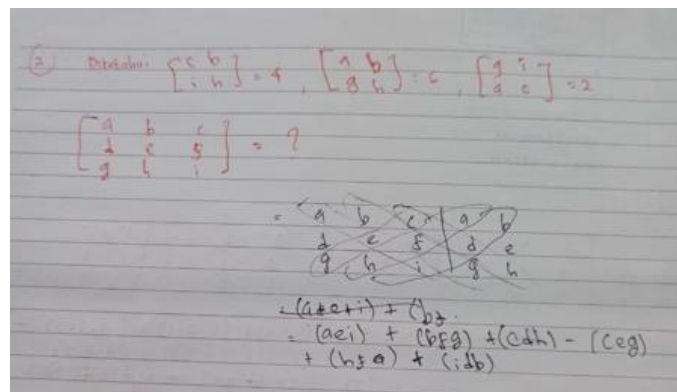 2 Diketahui [c b] = 4, [a b] = 6, [g i] = 2
[i h] [g h] [a c]
[a b c]
[d e f] = ?
[g h i]
= a b c | a b
d e f | d e
g h i | g h
= (a+e+i) + (bf
= (aei) + (bfg) + (cdh) - (ceg)
+ (hfa) + (idb)